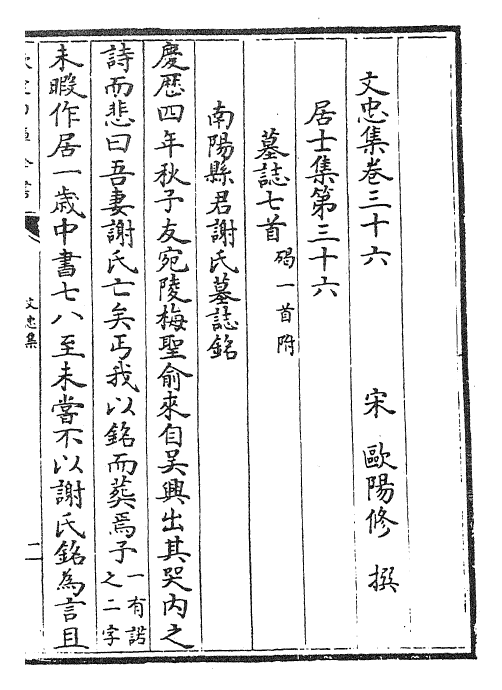 文忠集卷三十六
宋 歐陽修 撰
居士集第三十六
墓誌七首 碣一首附
南陽縣君謝氏墓誌銘
慶歷四年秋予友宛陵梅聖俞來自吳興出其哭内之
詩而悲曰吾妻謝氏亡矣丐我以銘而葬焉予一有諾之二字
未暇作居一歲中書七八至未嘗不以謝氏銘為言且
文忠集
二